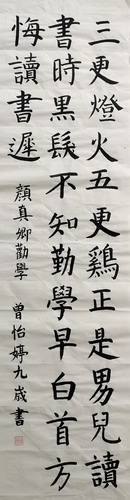 三更燈火五更鷄正是男兒讀
書時黑髮不知勤學早白首方
悔讀書遲
顔真卿勸學
曾怡婷九歲書